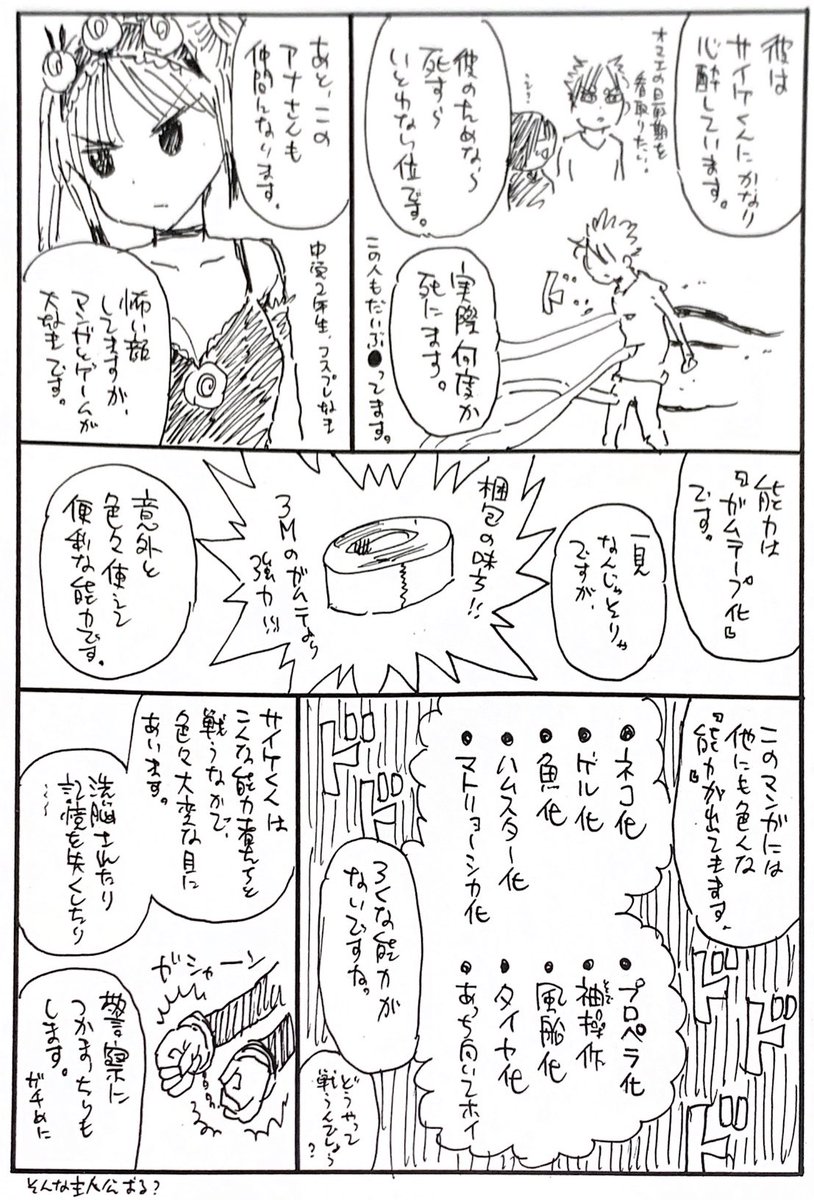 彼は
サイケくんにかなり
心酔しています。
オマエの最期を
看取りたい。
彼のためなら
死すら
いとわない位です。
実際何度か
死にます。
ド
この人もだいぶ●ってます。
あと、この
アナさんも
仲間になります。
中学2年生、コスプレ好き
怖い顔
してますが、
マンガとゲームが
大好きです。
能力は
『ガムテープ化』
です。
一見
なんじゃそりゃ
ですが、
梱包の味方!!
3Mのガムテなら
強力!!!
意外と
色々使えて
便利な能力です。
このマンガには
他にも色々な
『能力』が出てきます。
●ネコ化
●ゲル化
●魚化
●ハムスター化
●マトリョーシカ化
●プロペラ化
●袖操作
そで
●風船化
●タイヤ化
●あっち向いてホイ
ドド
ドド
ろくな能力が
ないですね。
どうやって
戦うんでしょう
?
サイケくんは
こんな能力者たちと
戦うなかで、
色々大変な目に
あいます。
洗脳されたり
記憶を失くしたり
〜〜
ガシャーン
警察に
つかまっちゃいも
します。
ガチめに
そんな主人公おる?